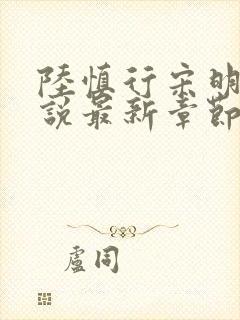 陸慎行宋明
說最新章節
盧同